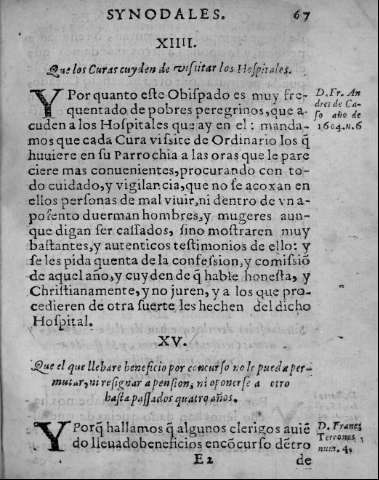 SYNODALES. 67
XIIII.
Que los Curas cuyden de visitar los Hospitales.
Y Por quanto este Obispado es muy fre-
quentado de pobres peregrinos, que a-
cuden a los Hospitales que ay en el: manda-
mos que cada Cura visite de Ordinario los q̃
huuiere en su Parrochia a las oras que le pare
ciere mas conuenientes, procurando con to-
do cuidado, y vigilancia, que no se acoxan en
ellos personas de mal viuir, ni dentro de vn a-
posento duerman hombres, y mugeres aun-
que digan ser cassados, sino mostraren muy
bastantes, y autenticos testimonios de ello: y
se les pida quenta de la confession, y comissiõ
de aquel año, y cuyden de q̃ hable honesta, y
Christianamente, y no juren, y a los que pro-
cedieren de otra suerte les hechen del dicho
Hospital.
D. Fr. An
dres de Ca-
so año de
1604. n. 6
XV.
Que el que llebare beneficio por concurso no le pueda per-
mutar, ni resignar a pension, ni oponerse a otro
hasta passados quatro años.
Y Porq̃ hallamos q̃ algunos clerigos auiẽ
do lleuado beneficios encõcurso dẽtro
D. Franc,
Terrones,
num. 4.
E2 de